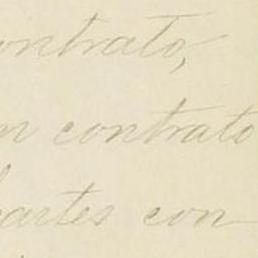 ontrato,
n contrato
artes con